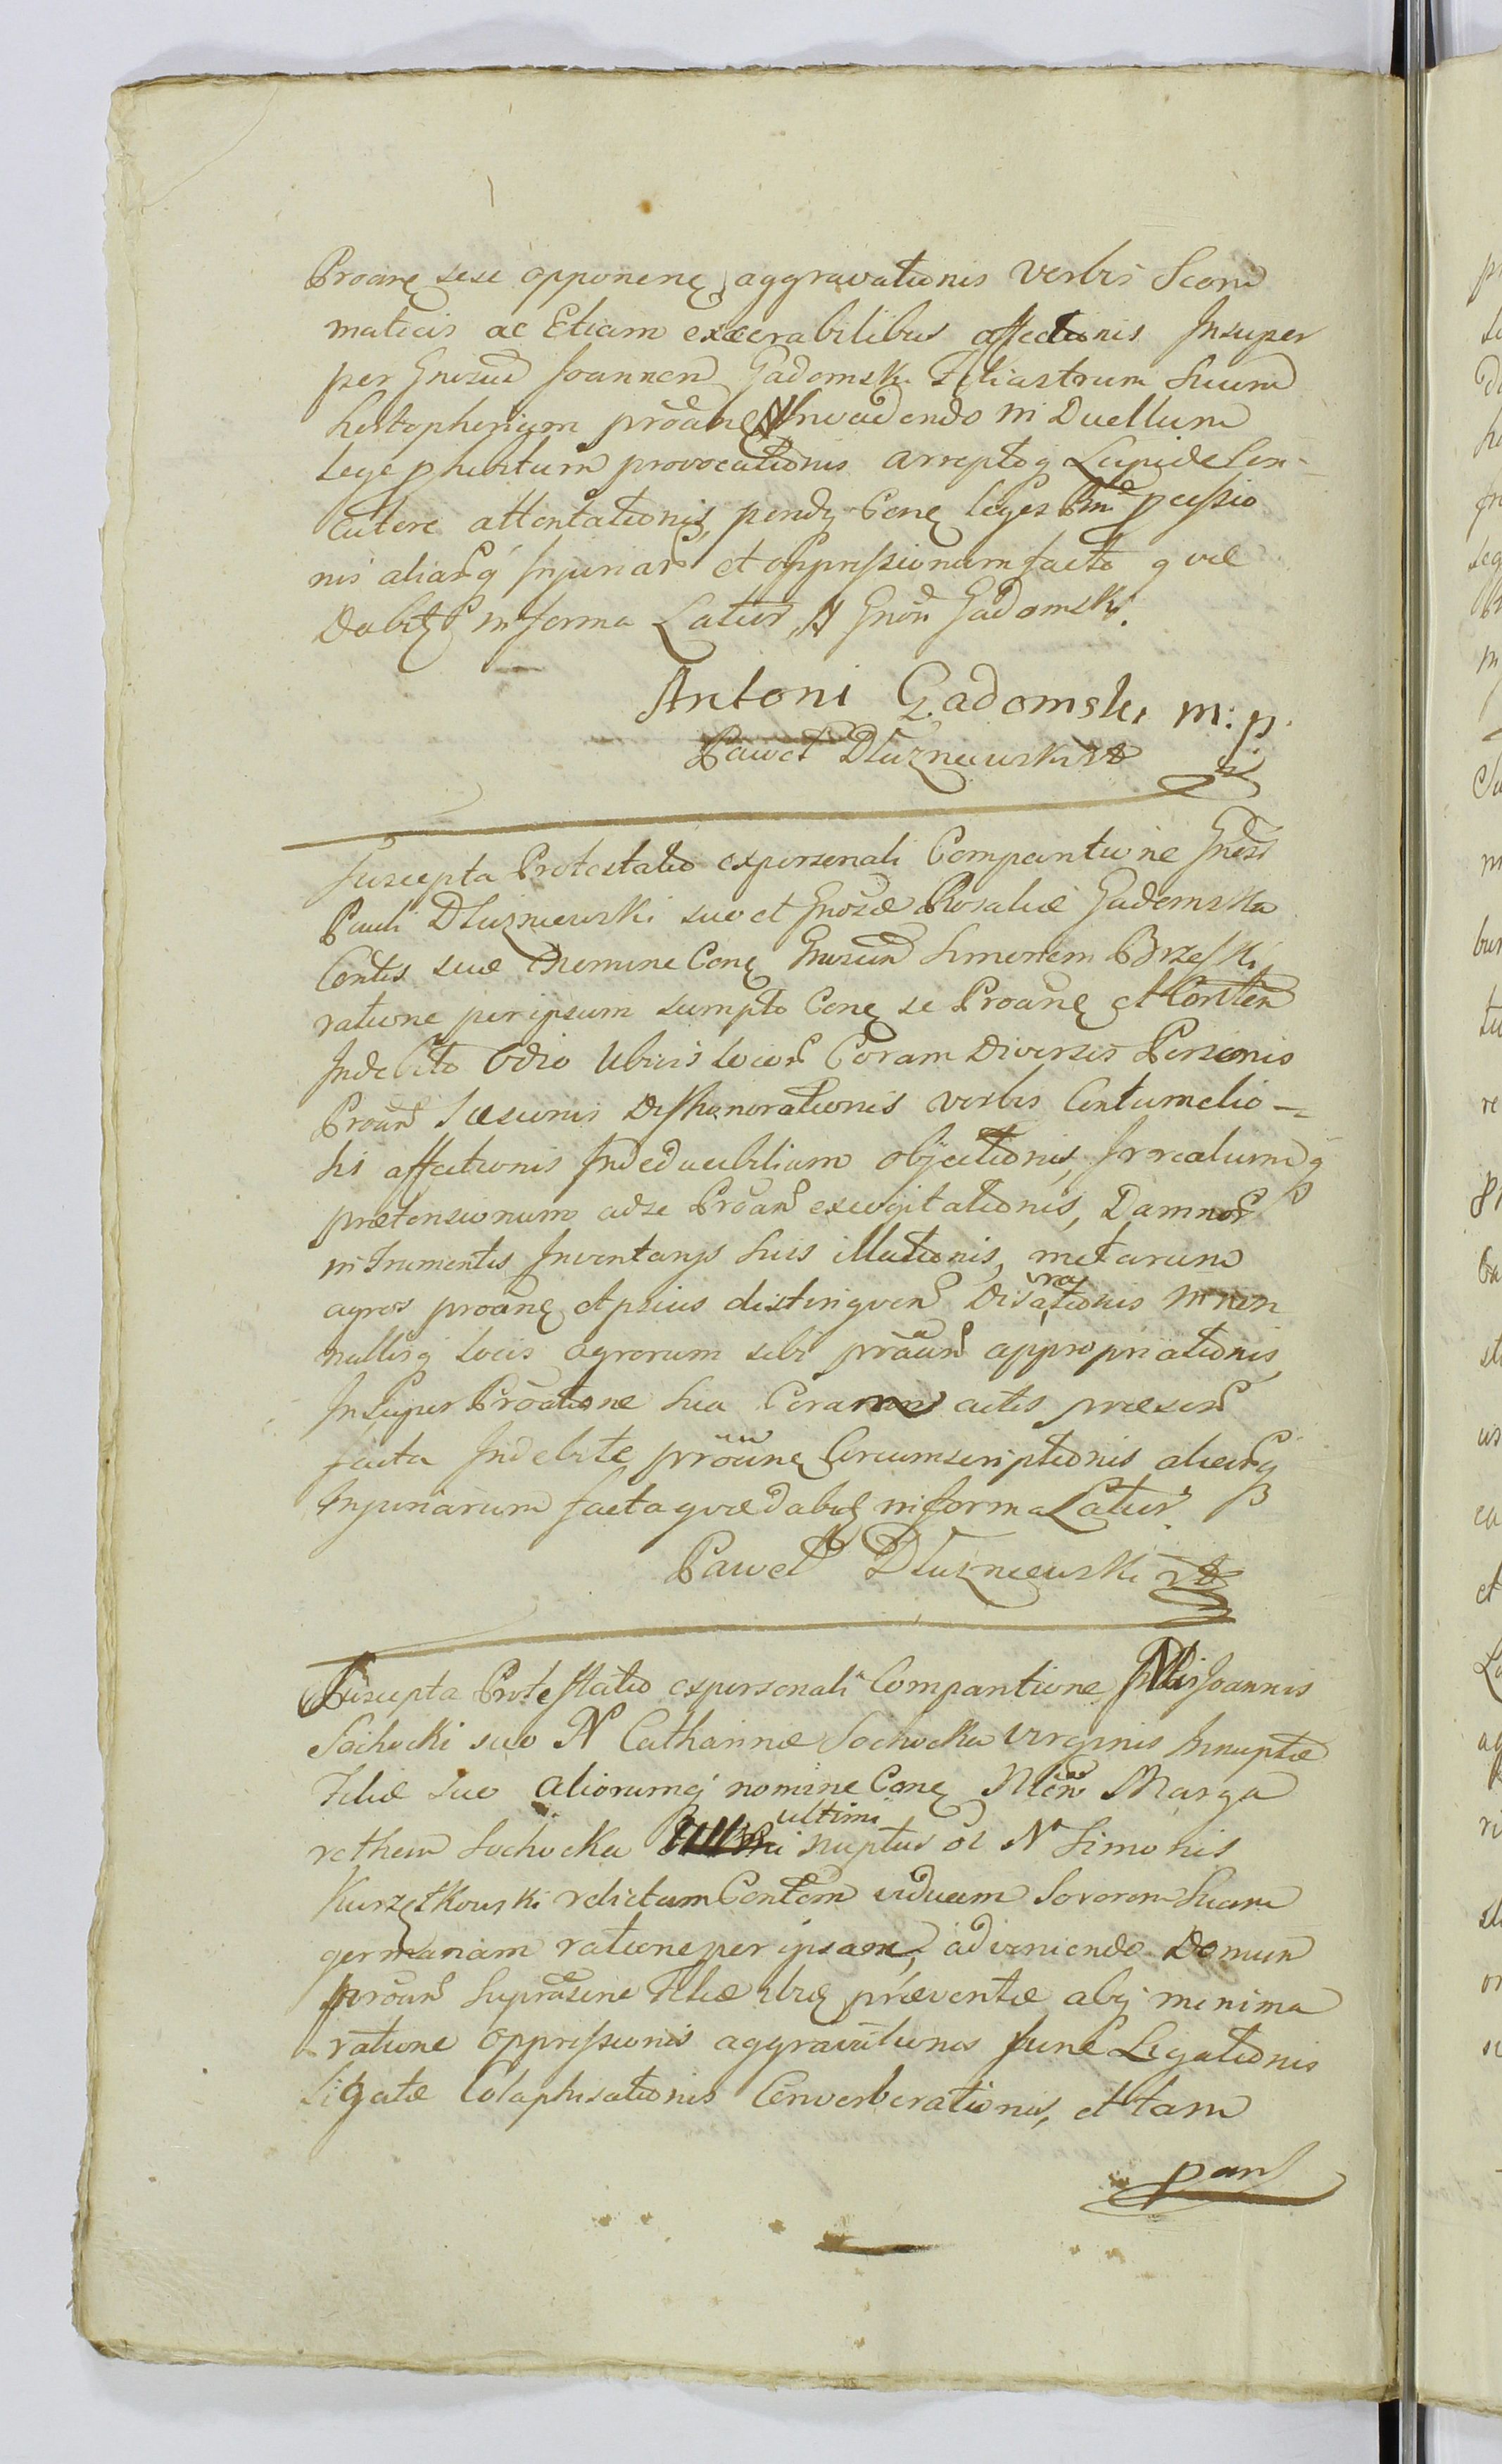 Proanę sese opponenę aggravationis verbis Scom
maticis ac Etiam execrabilibus affectionis Insuper
per Gnrosus Joannem Gadomski Filiastrum Suum
proanę Invadendo in Duellum
Lege phibitum provocationis arreptoq Lapide Con-
cutere attentationis, pendę Conę leges pcessio
nis aliarq Injuriar et oppressionum facto quæ
Dabitę in forma Latius N Gnōn Gadomski.
Antoni Gadomski m: p.
Paweł Dłuzniewski
Suscepta Protestatio expersonali Comparitione Gnosi
Pauli Dłuzniewski suo et Gnosæ Rosaliæ Gadomska
Contis suæ Nomine Conę Gnosum Simonem Brzeski
ratione per ipsum sumpto Conę se Proanę et Consten
Indebito Odio Ubivis locor Coram Diversis Personis
Proan Læsionis Dishonorationis verbis Contumelio-
sis affectionis Indeducibilium objectionis, Irrealiumq
prætensionum adse Proan excogitationis, Damnor
in Frumentis Inventarys suis illationis, metarum
agros proanę et psius distinguen Disrationis in non
nullisq Locis agrorum sibi proan appropriationis,
Insuper Proatione sua Coram actis præsen
facta Indebite proanę Circumscriptionis aliarq
Injuriarum facta quæ dabitę in forma Latius
Paweł Dłuzniewski
Suscepta Protestatio expersonali Comparitione Nblis Joannis
Sochocki suo N Catharinæ Sochocka virginis Innuptæ
Filiæ suo aliorumq nomine Conę Nblem Marga
retham Sochocka ultimi nuptus ol N Simonis
Kurzętkowski relictam Contem viduam Sororem Suam
germanam ratione per ipsam, adveniendo Domum
proan Supra Filiæ præventæ absq minima
ratione oppressionis aggravationis fune Ligationis
Ligatæ Colaphisationis Converberationis, et tam
pan